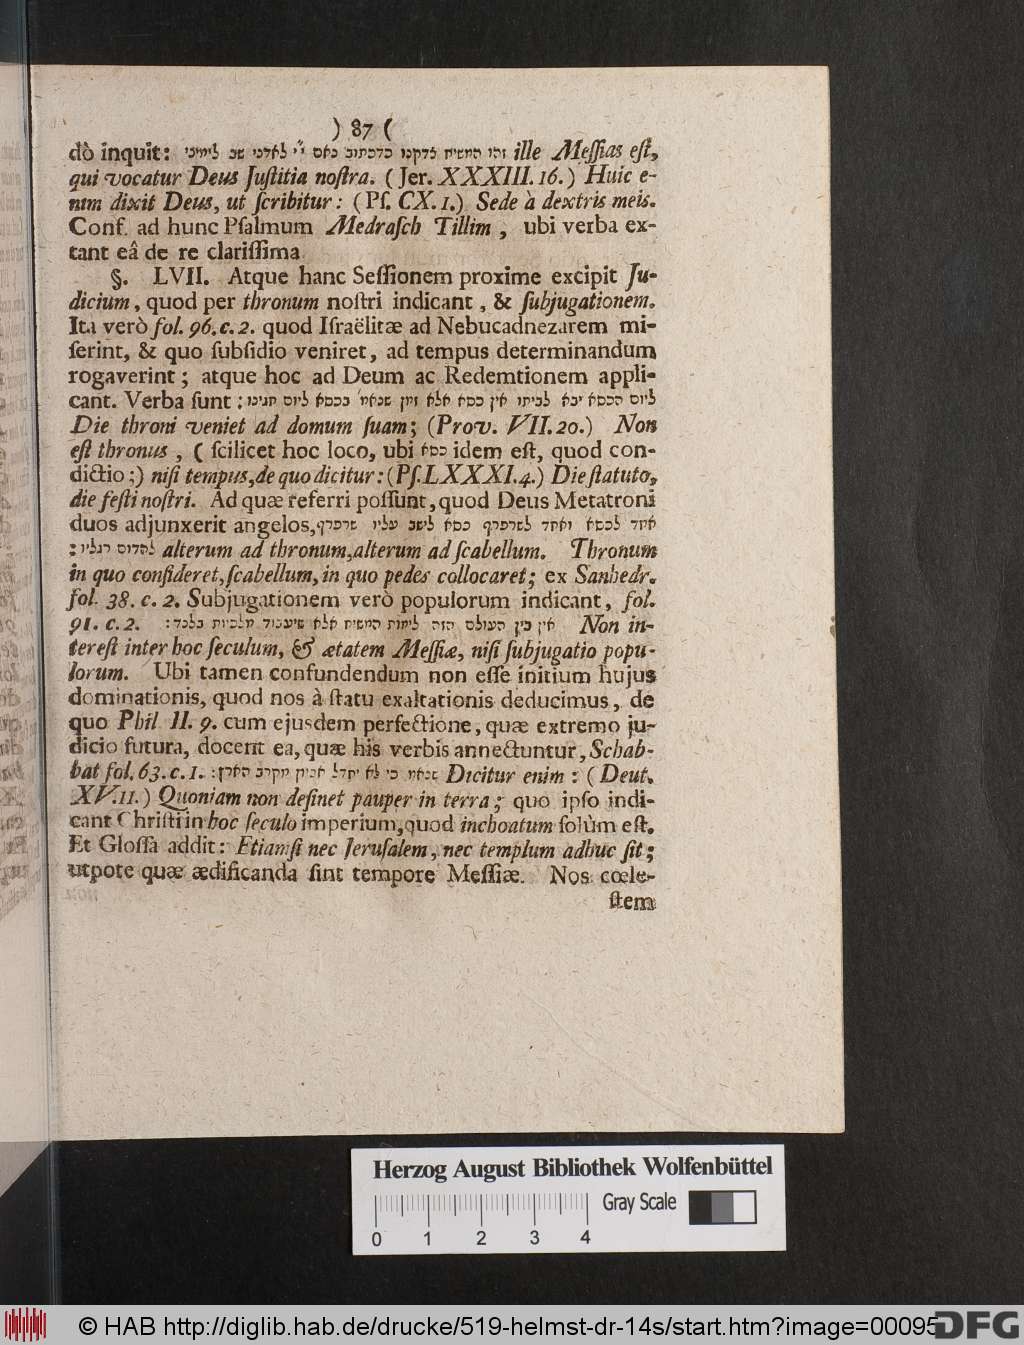 ) 87 (
dò inquit: זהו המשיח צדקנו כדכתוב נאם י״י לאדני שב לימיני ille Meſſias eſt,
qui vocatur Deus Juſtitia noſtra. ( Jer. XXXIII. 16. ) Huic e-
nim dixit Deus, ut ſcribitur : ( Pſ. CX. 1. ) Sede à dextris meis.
Conf. ad hunc Pſalmum Medraſch Tillim , ubi verba ex-
tant eâ de re clariſſima
§. LVII. Atque hanc Seſſionem proxime excipit Ju-
dicium, quod per thronum noſtri indicant , & ſubjugationem.
Ita verò fol. 96. c. 2. quod Iſraëlitæ ad Nebucadnezarem mi-
ſerint, & quo ſubſidio veniret, ad tempus determinandum
rogaverint ; atque hoc ad Deum ac Redemtionem appli-
cant. Verba ſunt : ליום הכסא יבא לביתו אין כסא אלא זמן שנאמ׳ בכסא ליום חגינו
Die throni veniet ad domum ſuam; (Prov. VII. 20.) Non
eſt thronus , ( ſcilicet hoc loco, ubi כסא idem eſt, quod con-
dictio ;) niſi tempus, de quo dicitur : (Pſ. LXXXI. 4.) Die ſtatuto,
die feſti noſtri. Ad quæ referri poſſunt, quod Deus Metatroni
duos adjunxerit angelos, אחד לכסא ואחד לשרפרף כסא לישב עליו שרפרף
להדום רגליו : alterum ad thronum, alterum ad ſcabellum. Thronum
in quo conſideret, ſcabellum, in quo pedes collocaret; ex Sanhedr.
fol. 38. c. 2. Subjugationem verò populorum indicant, fol.
91. c. 2. אין בין העולם הזה לימות המשיח אלא שיעבוד מלכיות בלבד : Non in-
tereſt inter hoc ſeculum, & ætatem Meſſiæ, niſi ſubjugatio popu-
lorum. Ubi tamen confundendum non eſſe initium hujus
dominationis, quod nos à ſtatu exaltationis deducimus, de
quo Phil II. 9. cum ejusdem perfectione, quæ extremo ju-
dicio futura, docent ea, quæ his verbis annectuntur, Schab-
bat fol. 63. c. 1. שנאמ׳ כי לא יחדל אביון מקרב הארץ : Dicitur enim : ( Deut.
XV. 11. ) Quoniam non deſinet pauper in terra ; quo ipſo indi-
cant Chriſti in hoc ſeculo imperium, quod inchoatum ſolùm eſt.
Et Gloſſa addit : Etiamſi nec Jeruſalem, nec templum adhuc ſit ;
utpote quæ ædificanda ſint tempore Meſſiæ. Nos cœle-
ſtem
Herzog August Bibliothek Wolfenbüttel
Gray Scale
0 1 2 3 4
© HAB http://diglib.hab.de/drucke/519-helmst-dr-14s/start.htm?image=00095
DFG